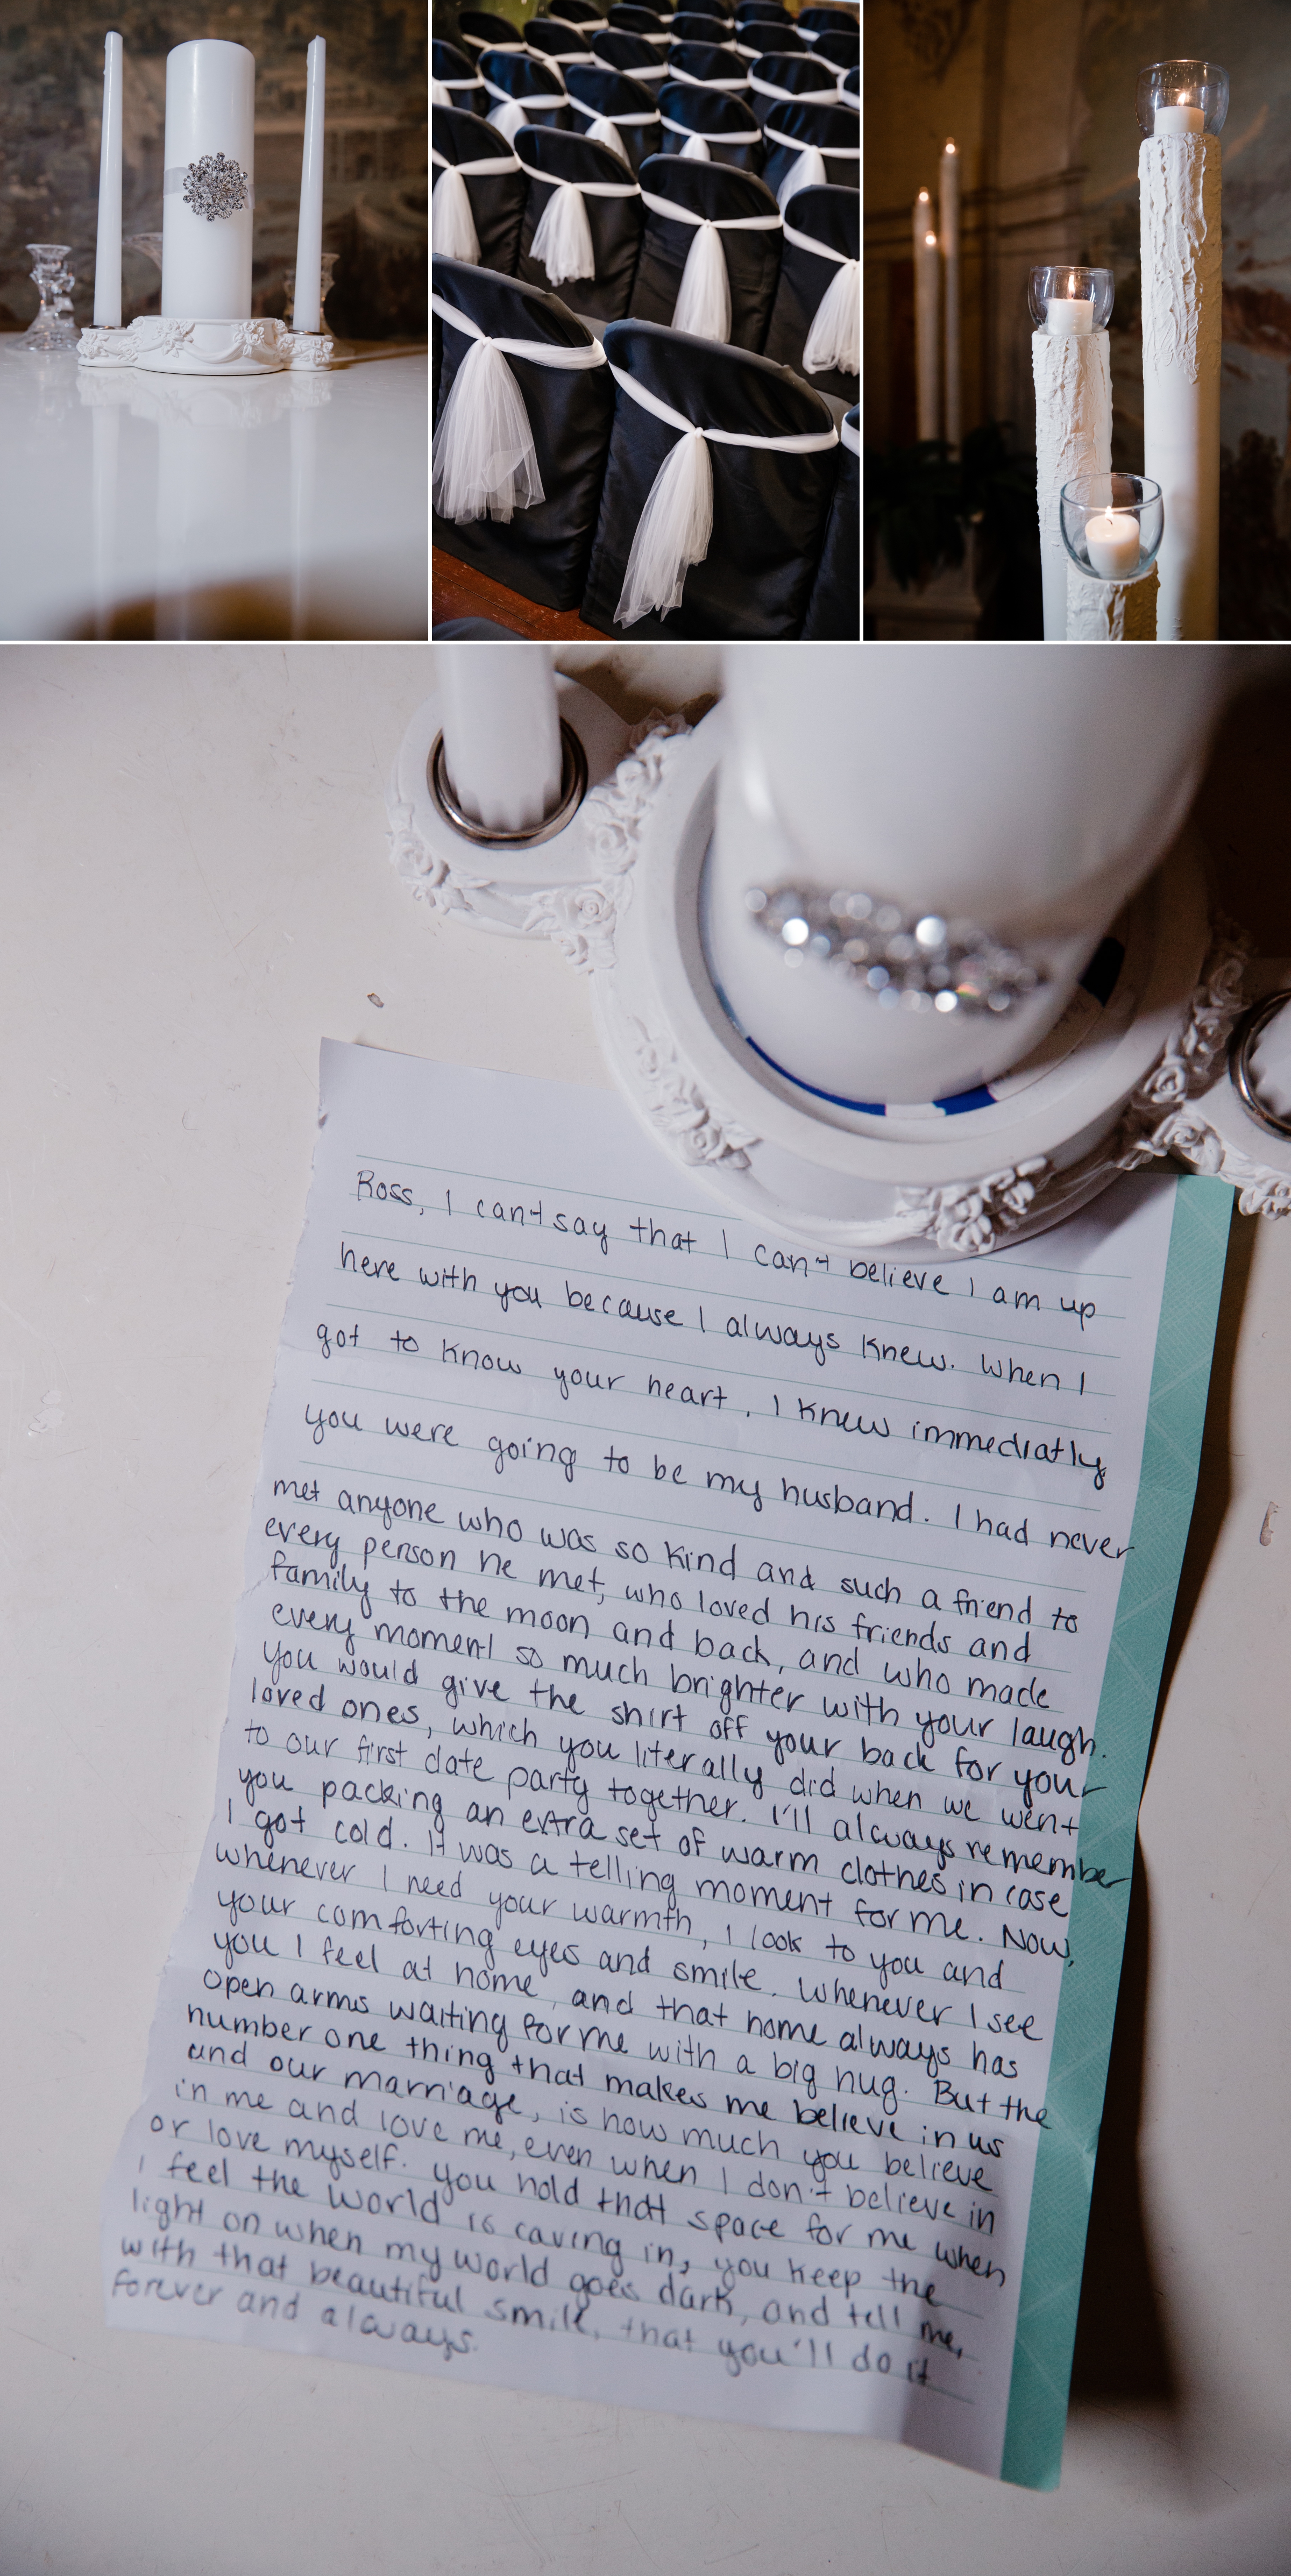 Ross, I can't say that I can't believe I am up
here with you because I always knew. When I
got to know your heart, I knew immediatly
you were going to be my husband. I had never
met anyone who was so kind and such a friend to
every person he met, who loved his friends and
family to the moon and back, and who made
every moment so much brighter with your laugh.
You would give the shirt off your back for your
loved ones, which you literally did when we went
to our first date party together. I'll always remember
you packing an extra set of warm clothes in case
I got cold. It was a telling moment for me. Now,
whenever I need your warmth, I look to you and
your comforting eyes and smile. Whenever I see
you I feel at home, and that home always has
open arms waiting for me with a big hug. But the
number one thing that makes me believe in us
and our marriage, is how much you believe
in me and love me, even when I don't believe in
or love myself. You hold that space for me when
I feel the world is caving in, you keep the
light on when my world goes dark, and tell me,
with that beautiful smile, that you'll do it
forever and always.